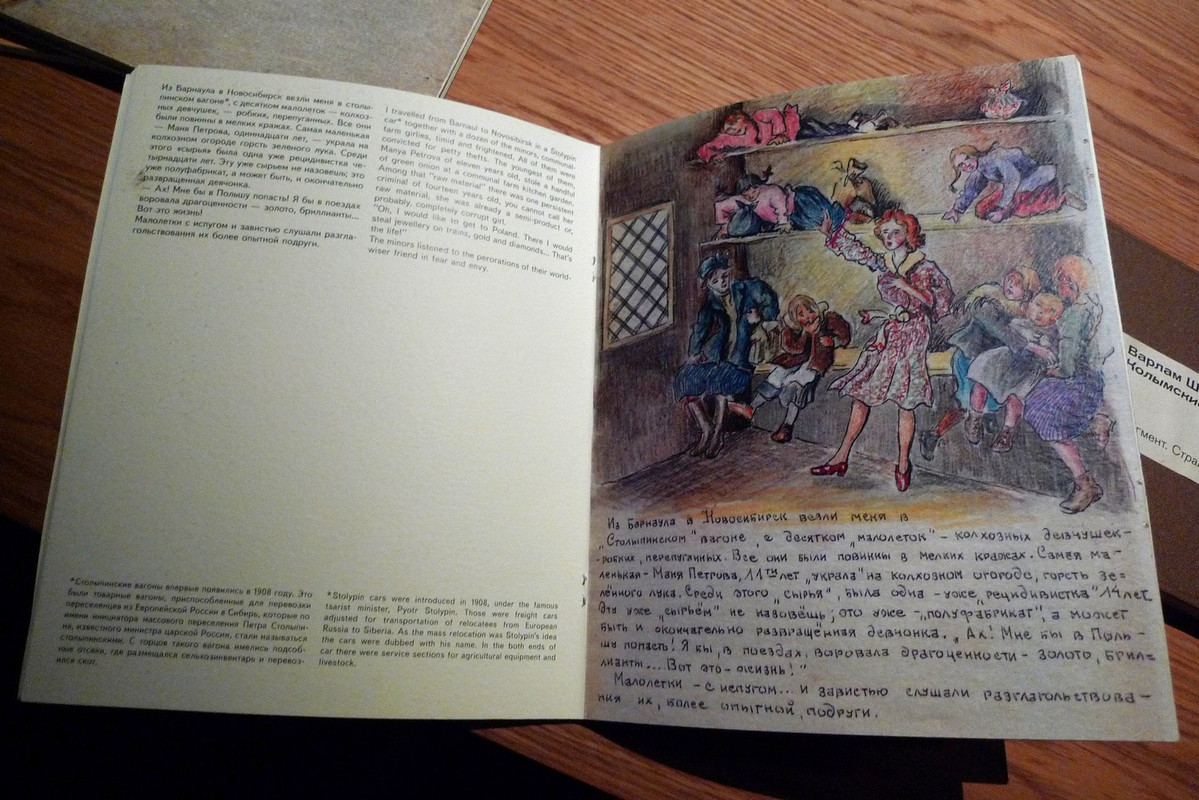 Из Барнаула в Новосибирск везли меня в столы-
пинском вагоне*, с десятком малолеток — колхоз-
ных девчушек, — робких, перепуганных. Все они
были повинны в мелких кражах. Самая маленькая
— Маня Петрова, одиннадцати лет, — украла на
колхозном огороде горсть зеленого лука. Среди
этого «сырья» была одна уже рецидивистка че-
тырнадцати лет. Эту уже сырьем не назовешь; это
уже полуфабрикат, а может быть, и окончательно
развращенная девчонка.
— Ах! Мне бы в Польшу попасть! Я бы в поездах
воровала драгоценности — золото, бриллианты...
Вот это жизнь!
Малолетки с испугом и завистью слушали разгла-
гольствования их более опытной подруги.
I travelled from Barnaul to Novosibirsk in a Stolypin
car* together with a dozen of the minors, communal-
farm girlies, timid and frightened. All of them were
convicted for petty thefts. The youngest of them,
Manya Petrova of eleven years old, stole a handful
of green onion at a communal farm kitchen garden.
Among that "raw material" there was one persistent
criminal of fourteen years old, you cannot call her
raw material, she was already a semi-product or,
probably, completely corrupt girl.
"Oh, I would like to get to Poland. There I would
steal jewellery on trains, gold and diamonds... That's
the life!"
The minors listened to the perorations of their world-
wiser friend in fear and envy.
*Столыпинские вагоны впервые появились в 1908 году. Это
были товарные вагоны, приспособленные для перевозки
переселенцев из Европейской России в Сибирь, которые по
имени инициатора массового переселения Петра Столыпи-
на, известного министра царской России, стали называться
столыпинскими. С торцов такого вагона имелись подсоб-
ные отсеки, где размещался сельхозинвентарь и перевоз-
ился скот.
*Stolypin cars were introduced in 1908, under the famous
tsarist minister, Pyotr Stolypin. Those were freight cars
adjusted for transportation of relocatees from European
Russia to Siberia. As the mass relocation was Stolypin's idea
the cars were dubbed with his name. In the both ends of
car there were service sections for agricultural equipment and
livestock.
Из Барнаула в Новосибирск везли меня в
„Столыпинском" вагоне, с десятком „малолеток" – колхозных девчушек –
робких, перепуганных. Все они были повинны в мелких кражах. Самая ма-
ленькая – Маня Петрова, 11ти лет „украла" на колхозном огороде, горсть зе=
лённого лука. Среди этого „сырья", была одна – уже „рецидивистка" 14 лет.
Эту уже „сырьём" не назовёшь; это уже – „полуфабрикат", а может
быть и окончательно развращённая девчонка. „Ах! Мне бы в Поль-
шу попасть! Я бы, в поездах, воровала драгоценности – золото, брил=
лианты... Вот это – жизнь!"
Малолетки – с испугом... и завистью слушали разглагольствова-
ния их, более опытной, подруги.
Варлам Ш
Колымски
гмент. Стра